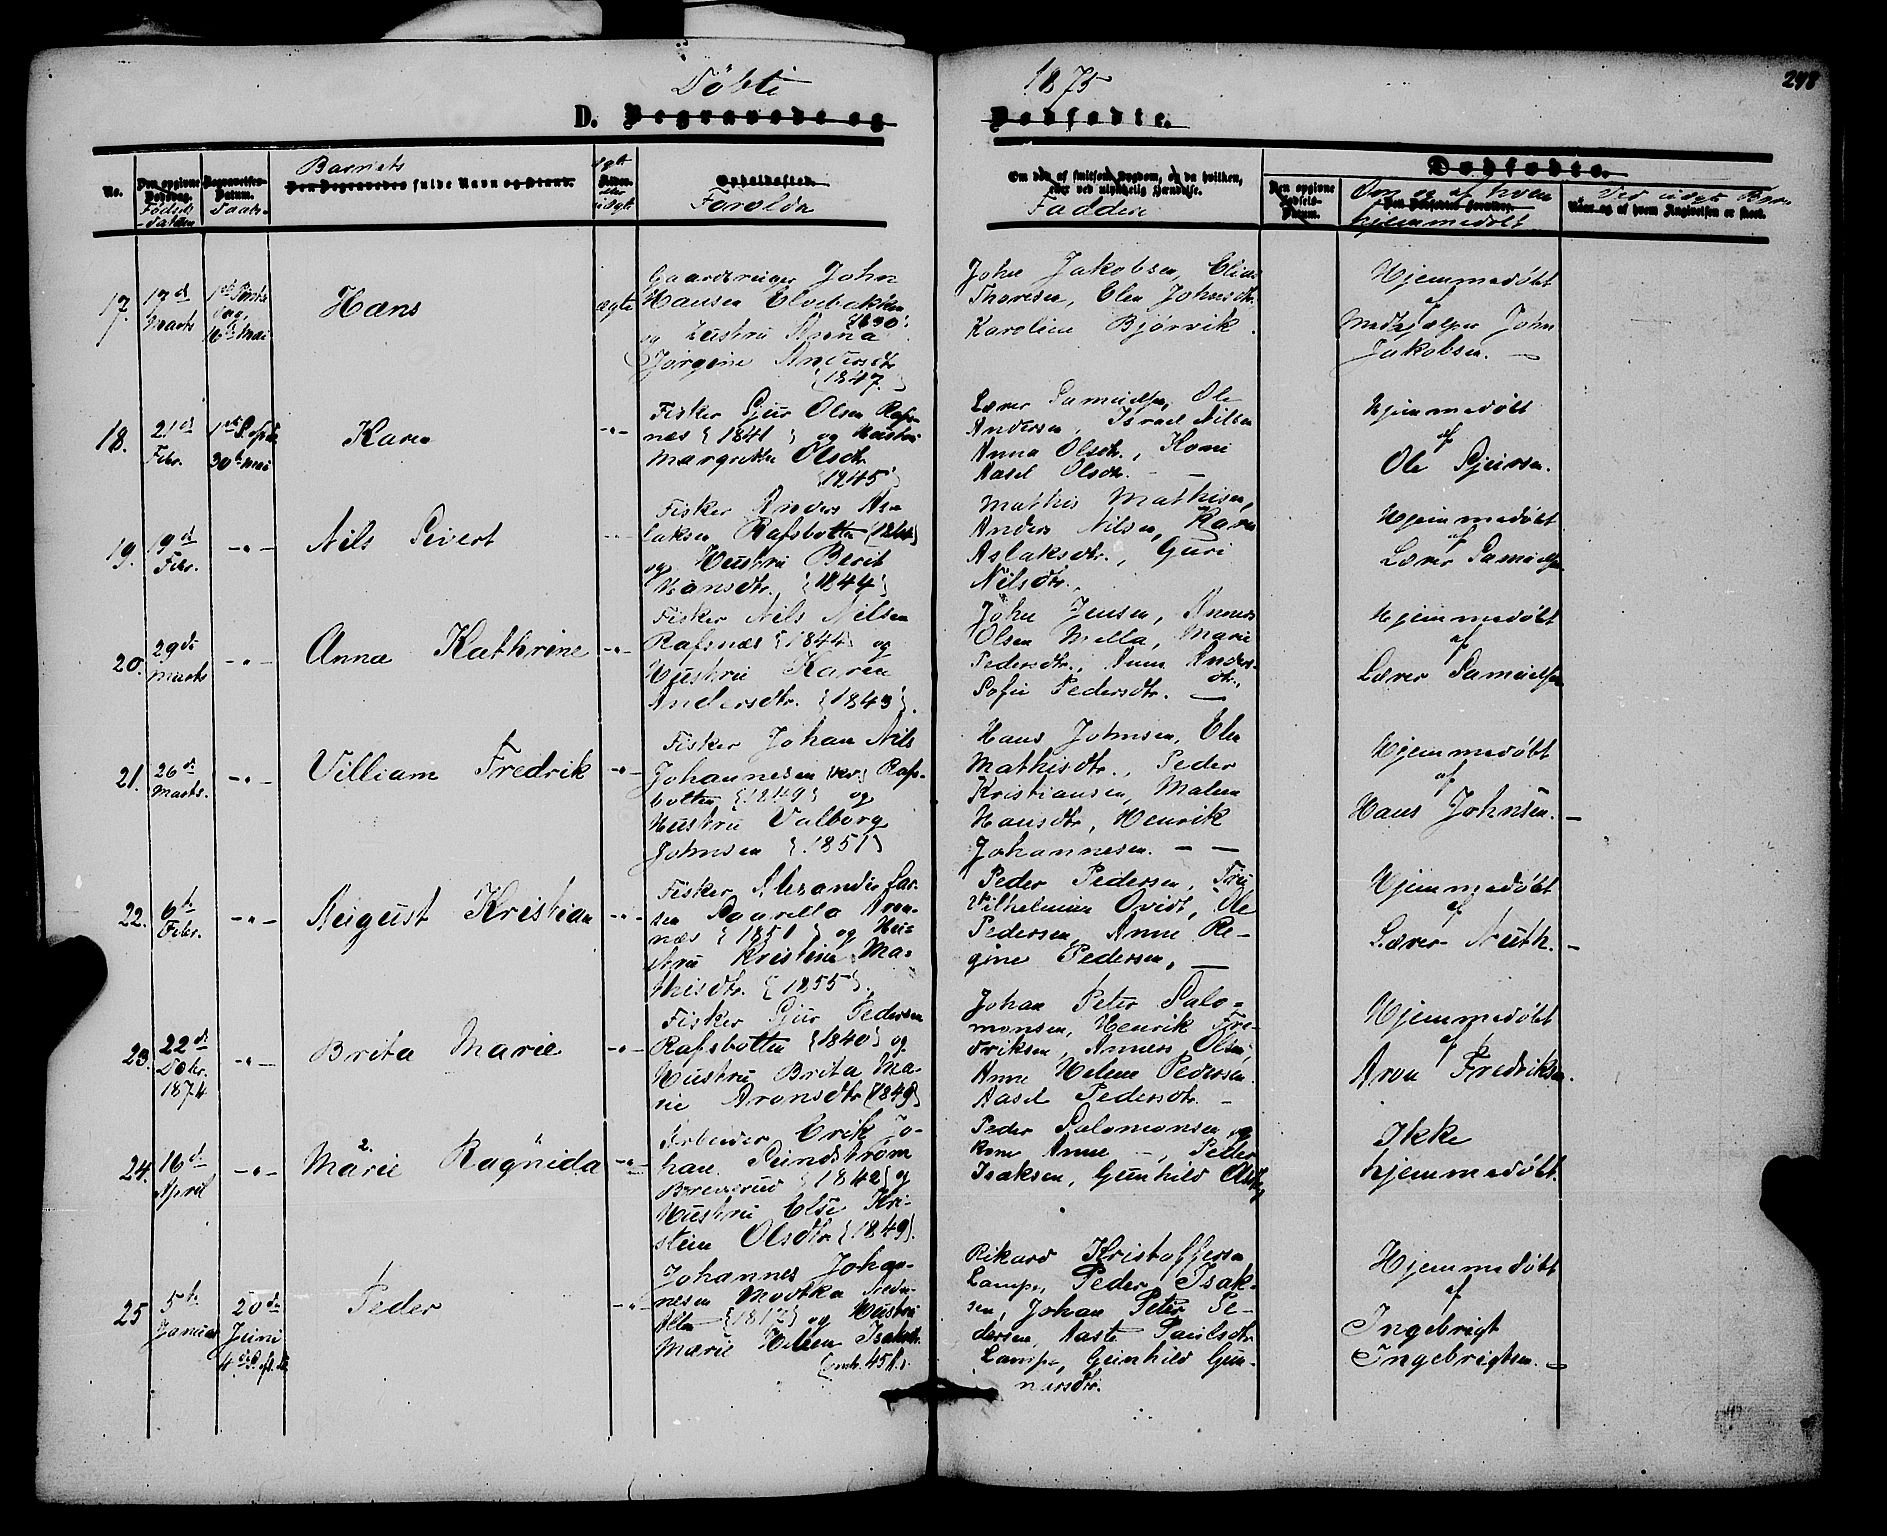 Döbte 1875 248
D. Begravede og Dødfødte.
No.
Den opgivne Dødsdag.
Fødsels-datum
Begravelses-Datum.
Daabs-
Barnets
Den Begravedes fulde Navn og Stand.
ægte eller uægte
Opholdssted.
Forældre
Om død af smitsom Sygdom, og da hvilken, eller ved ulykkelig Hændelse.
Faddere
Dødfødte.
Den opgivne Fødsels-Datum.
Om og af hvem
hjemmedøbt
Naar og af hvem Angivelsen er skeet.
Ved uægte Børn
17.
17d Marts
1ste Pintse dag, 16de Mai
Hans
ægte
Gaardbruger John
Hansen Elvebakken
og Hustru Anna
Jørgine Andersdtr
{1847}
John Jakobsen, Elias
Thoresen, Elen Johnsdtr.
Karoline Bjørvik.
Hjemmedøbt
af
Medhjælper John
Jakobsen. —
18.
21d Febr.
30te Mai
Karen
-"-
Fisker Gjur Olsen Rafs-
næs {1841} og Hustru
Margrethe Olsdtr.
{1845}
Lærer Samuelsen, Ole
Andersen, Israel Nilsen
Anna Olsdtr., Kone
Aasel Olsdtr. —
Hjemmedøbt
af
Ole Gjursen.
19.
19d Febr.
-"-
Nils Sivert
-"-
Fisker Anders As-
laksen Rafsbotten
og Hustru Berit
Hansdtr. {1844}
Mathis Mathisen,
Anders Nilsen, Karen
Aslaksdtr., Guri
Nilsdtr.
Hjemmedøbt
af
Lærer Samuelsen
20.
29de Marts
-"-
Anna Kathrine
-"-
Fisker Nils Nilsen
Rafsnæs {1844} og
Hustru Karen
Andersdtr. {1843}.
John Jensen, Anners
Olsen Mella, Marie
Pedersdtr., Anne Anders-
dtr.,
Sofie Pedersdtr. —
Hjemmedøbt
af
Lærer Samuelsen
21.
26de Marts.
-"-
Villiam Fredrik
-"-
Fisker Johan Nils
Johannesen Rafs-
botten {1849} og
Hustru Valborg
Johnsen {1851}
Hans Johnsen, Elen
Mathisdtr., Peder
Kristiansen, Malene
Hansdtr, Henrik
Johannesen. — —
Hjemmedøbt
af
Hans Johnsen. —
22.
6te Febr.
-"-
August Kristian
-"-
Fisker Alexander Lar-
sen Saarella Aron-
næs {1851} og Hu-
stru Kristine Ma-
thisdtr. {1855}.
Peder Pedersen, Fru
Vilhelmine Qvidt, Ole
Pedersen, Anne Re-
gine Pedersen, —
Hjemmedøbt
af
Lærer Nuth. —
23.
22de Debr. 1874
-"-
Brita Marie
-"-
Fisker Gjur Pedersen
Rafsbotten {1840} og
Hustru Brita Ma-
rie Aronsdtr {1849}
Johan Peter Salo-
monsen, Henrik Fre-
driksen, Anners Olsen,
Anne Helene Pedersen
Aasel Pedersdtr. —
Hjemmedøbt
af
Aron Fredriksen.
24.
16de April
-"-
Marie Ragnida
-"-
Arbeider Erik Jo-
han Sundstrøm
{1842} og
Hustru Else Kri-
stine Olsdtr {1849}.
Peder Salomonsen og
Kone Anne —, Peder
Isaksen, Gunhild Olsdtr
Ikke
hjemmedøbt.
25
5te Januar
20de Juni
Peder
-"-
Johannes Johan-
nesen Modtka Nedre
Alten {1817} og Hustru
Marie Helene Isaksdtr.
Rikard Kristoffersen
Lampe, Peder Isak-
sen, Johan Peter Pe-
dersen, Aaste Paulsdtr
Lampe, Gunhild Gun-
narsdtr.
Hjemmedøbt
af
Ingebrigt
Ingebrigtsen. —